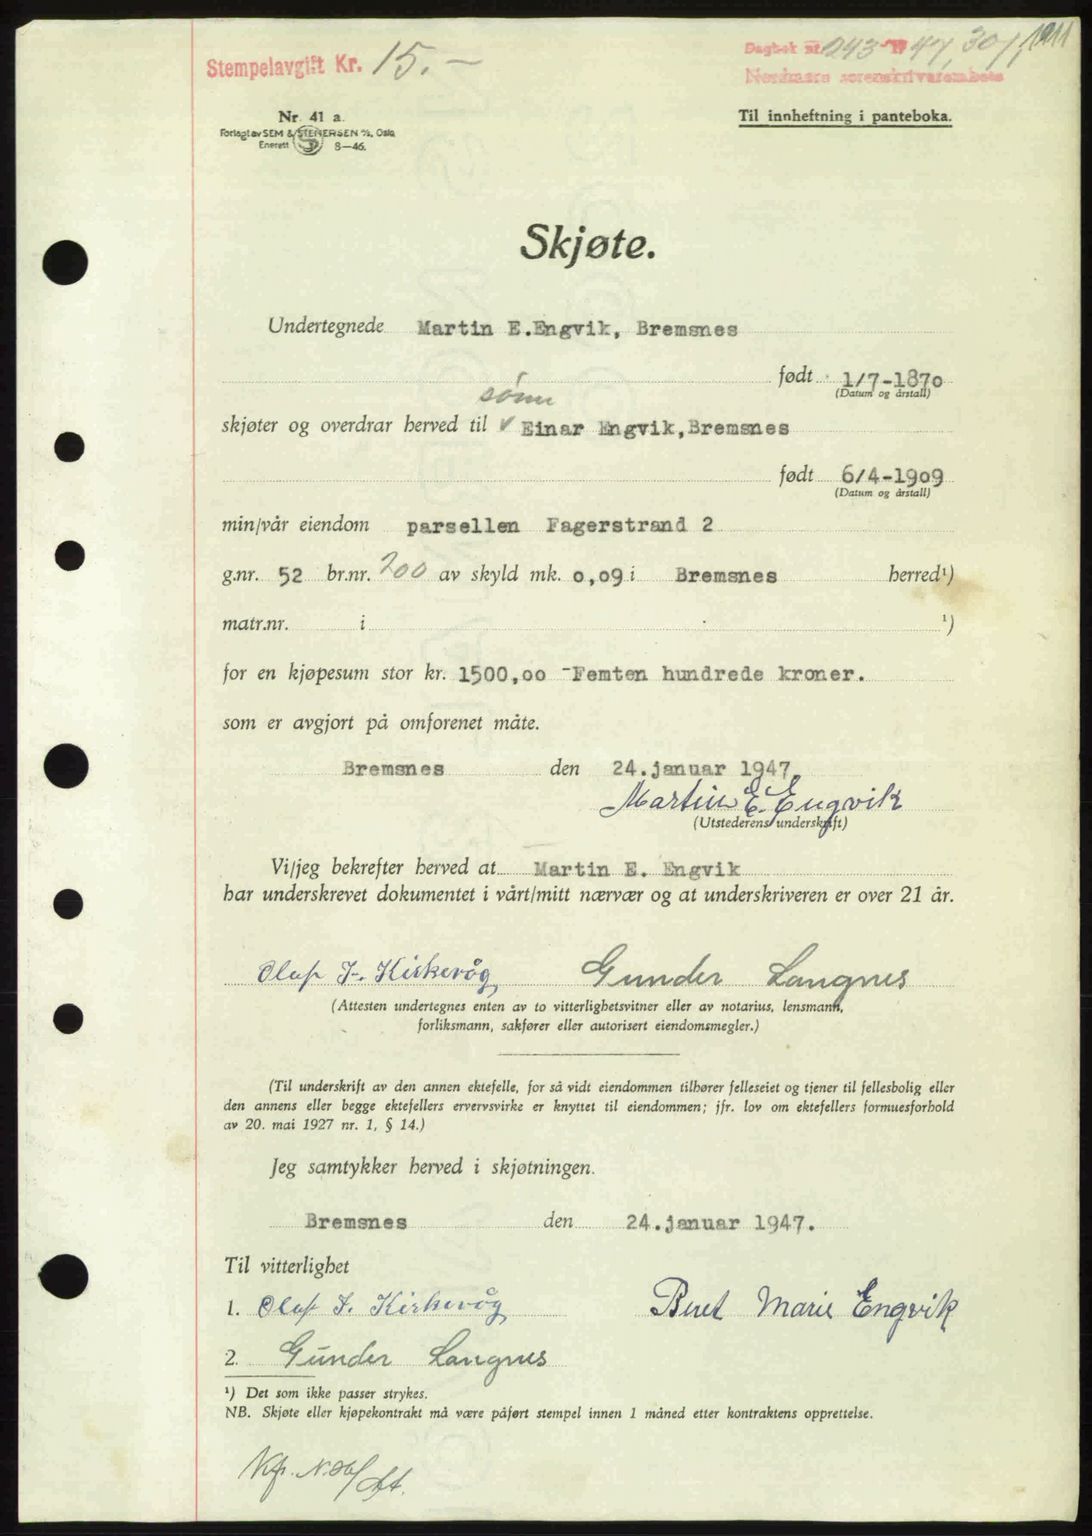 Stempelavgift Kr. 15.-
Dagbok nr. 243 - 1947, 30/1,
Nordmøre sorenskriverembete
Nr. 41 a.
Forlagt av SEM & STENERSEN A/S, Oslo
Enerett 8-46.
Til innheftning i panteboka.
Skjøte.
Undertegnede Martin E.Engvik, Bremsnes
født 1/7-1870
(Datum og årstall)
sønn
skjøter og overdrar herved til Einar Engvik,Bremsnes
født 6/4-1909
(Datum og årstall)
min/vår eiendom parsellen Fagerstrand 2
g.nr. 52 br.nr. 200 av skyld mk. 0,09 i Bremsnes herred¹)
matr.nr. i ¹)
for en kjøpesum stor kr. 1500,00 -Femten hundrede kroner.
som er avgjort på omforenet måte.
Bremsnes den 24.januar 1947.
Martin E. Engvik
(Utstederens underskrift)
Vi/jeg bekrefter herved at Martin E. Engvik
har underskrevet dokumentet i vårt/mitt nærvær og at underskriveren er over 21 år.
Olaf J. Kirkevåg Gunder Langnes
(Attesten undertegnes enten av to vitterlighetsvitner eller av notarius, lensmann,
forliksmann, sakfører eller autorisert eiendomsmegler.)
(Til underskrift av den annen ektefelle, for så vidt eiendommen tilhører felleseiet og tjener til fellesbolig eller
den annens eller begge ektefellers ervervsvirke er knyttet til eiendommen; jfr. lov om ektefellers formuesforhold
av 20. mai 1927 nr. 1, § 14.)
Jeg samtykker herved i skjøtningen.
Bremsnes den 24.januar 1947.
Til vitterlighet
1. Olaf J. Kirkevåg Beret Marie Engvik
2. Gunder Langnes
¹) Det som ikke passer strykes.
NB. Skjøte eller kjøpekontrakt må være påført stempel innen 1 måned etter kontraktens opprettelse.